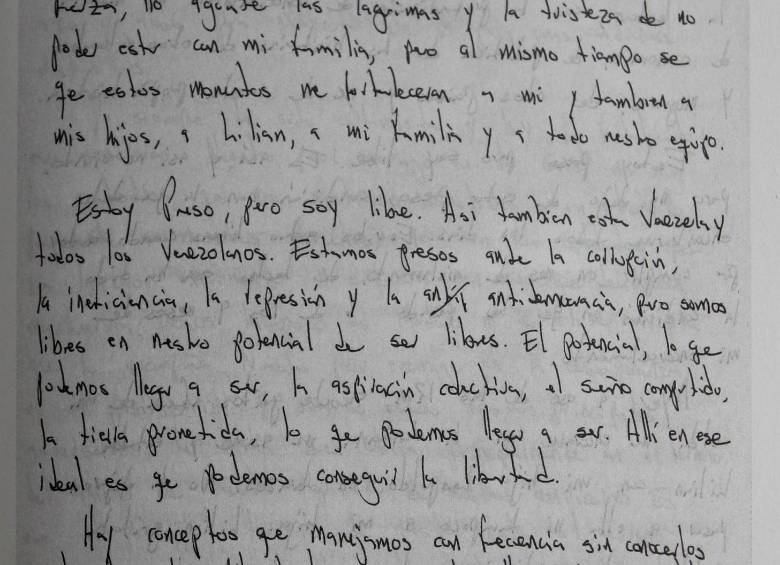 no aguante las lagrimas y la tristeza de no
poder estr con mi familia, pero al mismo tiempo se
qe estos momentos me fortaleceran a mi y tambien a
mis hijos, a Lilian, a mi familia y a todo nestro equipo.
Estoy Preso, pero soy libre. Asi tambien esta Vnezela y
todos los Venezolanos. Estamos presos ante la corrupcin,
la ineficiancia, la represión y la antidemocracia, pero somos
libres en nestro potencial de ser libres. El potencial, lo qe
podemos llegar a ser, la aspiración colectiva, el sueño compartido,
la tierra prometida, lo qe podemos llegar a ser. Alli en ese
ideal es qe podemos conseguir la libertad.
Hay conceptos que manejamos con frecencia sin conocerlos